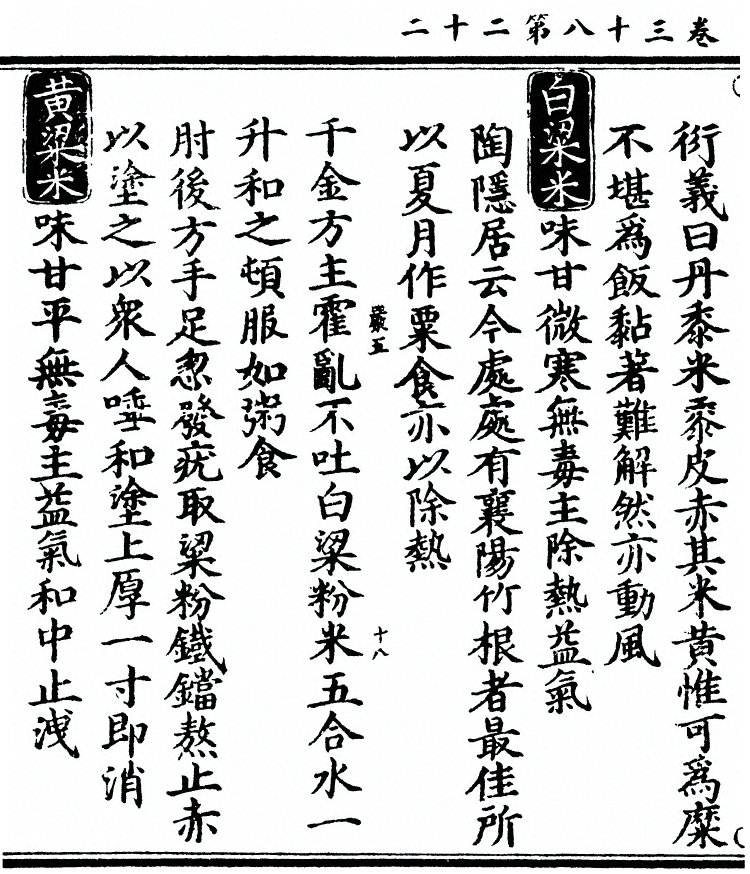 卷三十八第二十二
衍義曰丹黍米黍皮赤其米黃惟可爲糜
不堪爲飯黏著難解然亦動風
白粱米味甘微寒無毒主除熱益氣
陶隱居云今處處有襄陽竹根者最佳所
以夏月作粟食亦以除熱
嚴五
十八
千金方主霍亂不吐白粱粉米五合水一
升和之頓服如粥食
肘後方手足忽發疣取粱粉鐵鐺熬止赤
以塗之以衆人唾和塗上厚一寸即消
黃粱米味甘平無毒主益氣和中止洩